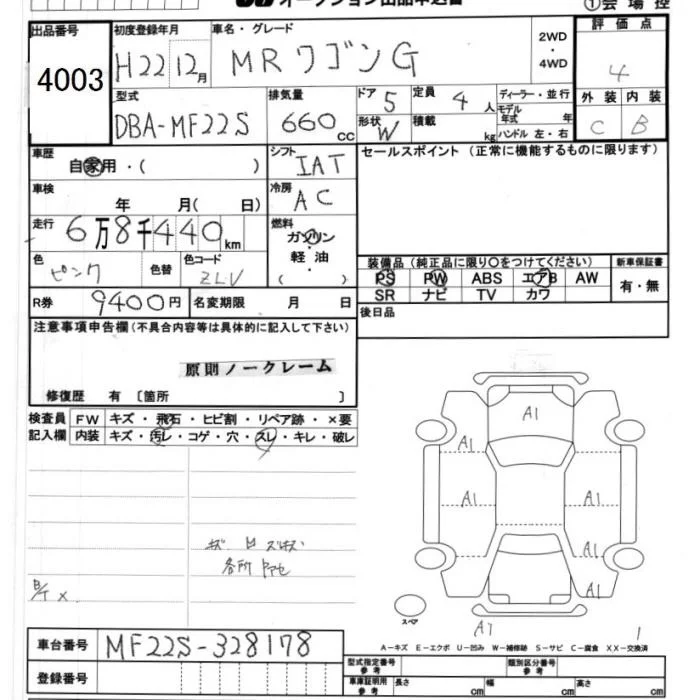 オークション出品申込書 ①会場控
出品番号 初度登録年月 車名・グレード 2WD・4WD 評価点
4003 H22 12月 MRワゴンG 4
型式 排気量 ドア 5 定員 4人 ディーラー・並行 外装 内装
DBA-MF22S 660cc 形状 W 積載 kg モデル年式 年 ハンドル 左・右 C B
車歴 自家用・( ) シフト IAT セールスポイント (正常に機能するものに限ります)
車検 年 月( 日) 冷房 AC
走行 6万8千440km 燃料 ガソリン・軽油・( )
色 ピンク 色替 色コード ZLV 装備品(純正品に限り○をつけてください) 新車保証書
PS PW ABS エアB AW 有・無
R券 9400円 名変期限 月 日 SR ナビ TV カワ
注意事項申告欄(不具合内容等は具体的に記入して下さい) 後日品
原則ノークレーム
修復歴 有 [箇所 ]
検査員 FW キズ・飛石・ヒビ割・リペア跡・×要
記入欄 内装 キズ・汚レ・コゲ・穴・スレ・キレ・破レ
A1
A1
A1 A1
A1
A1
各所
スペア
A1 1
A-キズ E-エクボ U-凹み W-補修跡 S-サビ C-腐食 XX-交換済
車台番号 MF22S-328178
登録番号 型式指定番号 参考 類別区分番号 参考
車庫証明用 参考 長さ cm 幅 cm 高さ cm